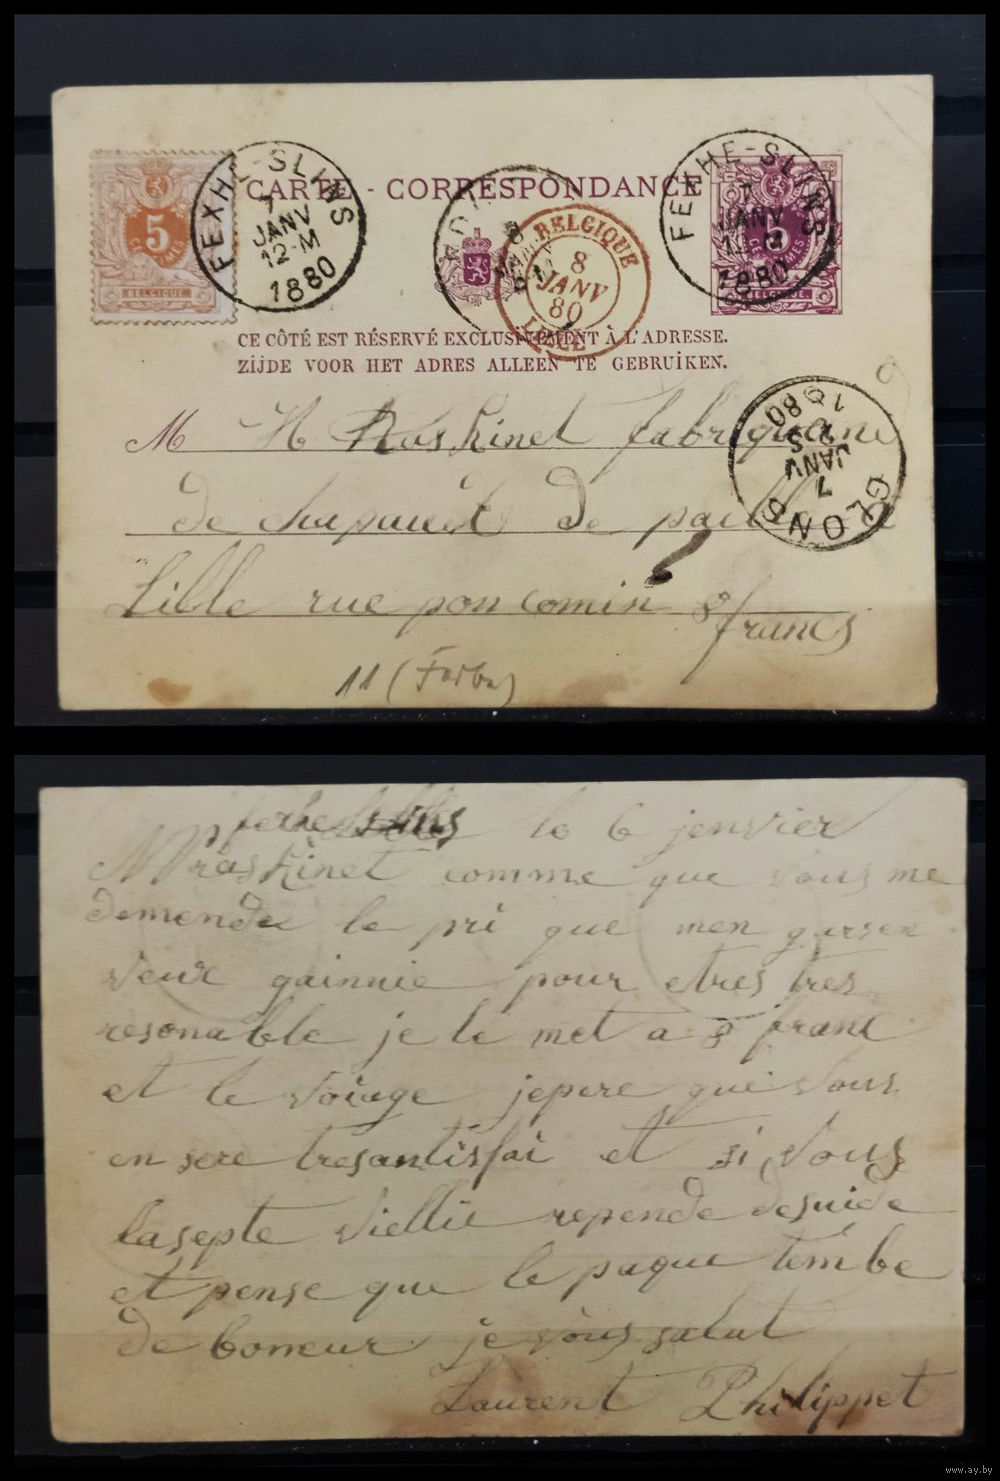 FEXHE-SLINS
7
JANV
12-M
1880
CARTE-CORRESPONDANCE
FEXHE-SLINS
7
JANV
12-M
1880
5
CENTIMES
BELGIQUE
5
CENTIMES
BELGIQUE
BELGIQUE
8
JANV
80
LIEGE
CE CÔTÉ EST RÉSERVÉ EXCLUSIVEMENT À L'ADRESSE.
ZIJDE VOOR HET ADRES ALLEEN TE GEBRUIKEN.
GLONS
7
JANV
1880
M H Raskinet fabriquant
de chapaux de paille a
Lille rue pon comin 8
francs
11 (Farbe)
ferhe slins le 6 jenvier
Mr raskinet comme que vous me
demende le pri que men garsen
veux gainnie pour etres tres
resonable je le met a 8 franc
et le voiage jepere que vous
en sere tresantisfai et si vous
lasepte viellie repende desuide
et pense que le paque tembe
de boneur je vous salut
Laurent Philippet
www.ay.by